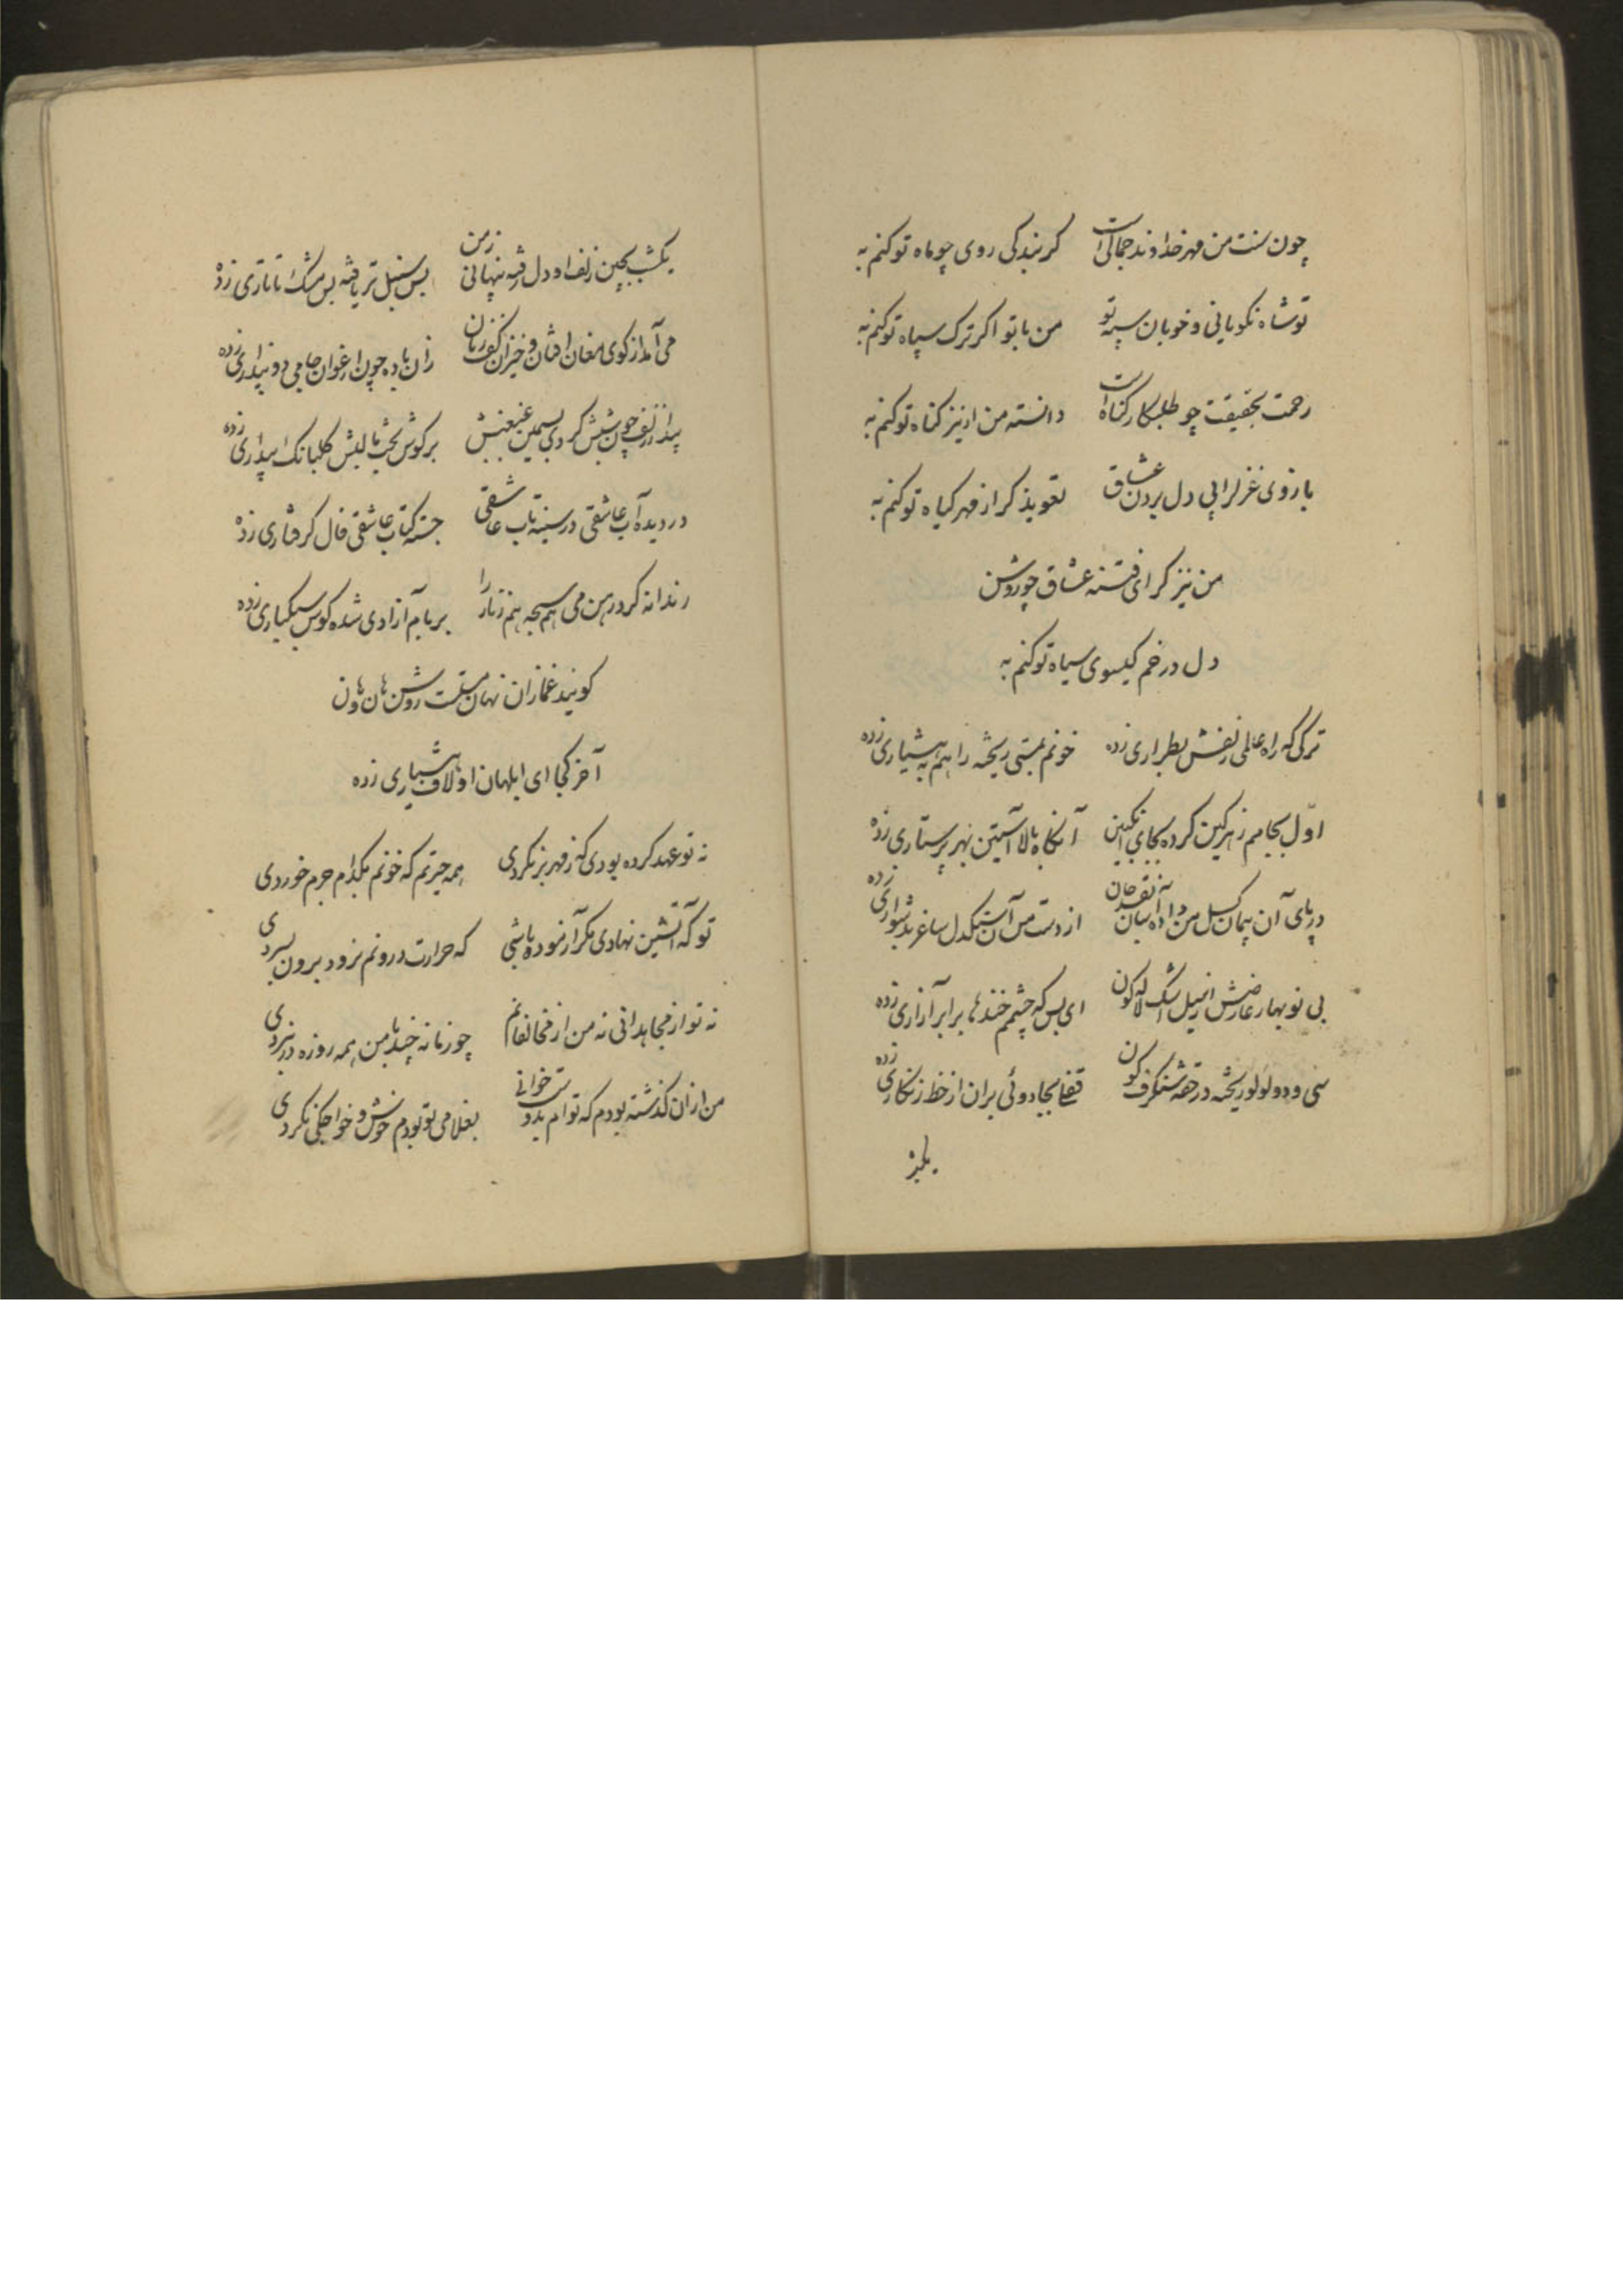 چون سنت من مهر خداوند جمالی است گر بندگی روی چو ماه تو کنم به
تو شاه نکویانی و خوبان سپه تو من با تو اگر ترک سپاه تو کنم به
رحمت بحقیقت چو طلبکار گناه است دانسته من ار نیز گناه تو کنم به
بازوی غزلرا پی دل بردن عشاق تعویذ گر از مهر گیاه تو کنم به
من نیز گر ای فتنه عشاق چو روشن
دل در خم گیسوی سیاه تو کنم به
ترکی که راه عالمی زلفش بطراری زده خونم بمستی ریخته راهم به هشیاری زده
اول بجامم زهر کین کرده بجای انگبین آنگاه بالا آستین بهر پرستاری زده
در پای آن پیمان گسل من داده آسان نقد جان از دست من آن سنگدل ساغر بدشواری زده
بی نوبهار عارضش از سیل اشک لاله گون ای بس که چشمم خندها بر ابر آزاری زده
سی و دو لولو ریخته در حقه شنگرف گون قفلی بجادوئی بر آن از خط زنگاری زده
یکشب
یکشب بچین زلف او دل رفته پنهانی ز من بس سنبل تر یافته بس مشک تاتاری زده
می آمد از کوی مغان افتان و خیزان کف زنان زان باده چون ارغوان جامی دو پنداری زده
پیدا ز زلف چون شبش گرد سیمین غبغبش بر گوش بخت بالبش گلبانگ بیداری زده
در دیده آب عاشقی در سینه تاب عاشقی جسته کتاب عاشقی فال گرفتاری زده
رندانه کرد رهن می هم سبحه هم زنار را بر بام آزادی شده کوس سبکباری زده
گویند غمازان نهان مستست روشن هان و هان
آخر کجا ای ابلهان او لاف هشیاری زده
نه تو عهد کرده بودی که ز مهر بر نگردی همه حیرتم که خونم بکدام جرم خوردی
تو که آتشین نهادی مگر آزموده باشی که حرارت درونم نرود برون بسردی
نه تو از مجاهدانی نه من از مخالفانم چو زمانه چند با من همه روزه در نبردی
من از ان گذشته بودم که توام بدوست خوانی بغلامی تو بودم خوش و خواجگی نکردی